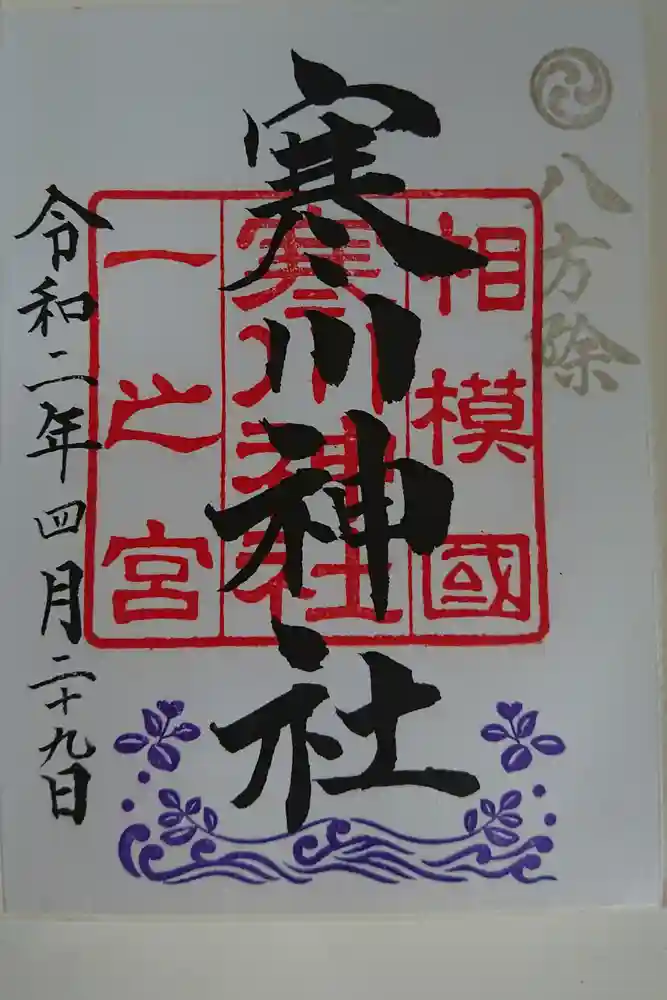 八方除
相模國
寒川神社
一之宮
寒川神社
令和二年四月二十九日